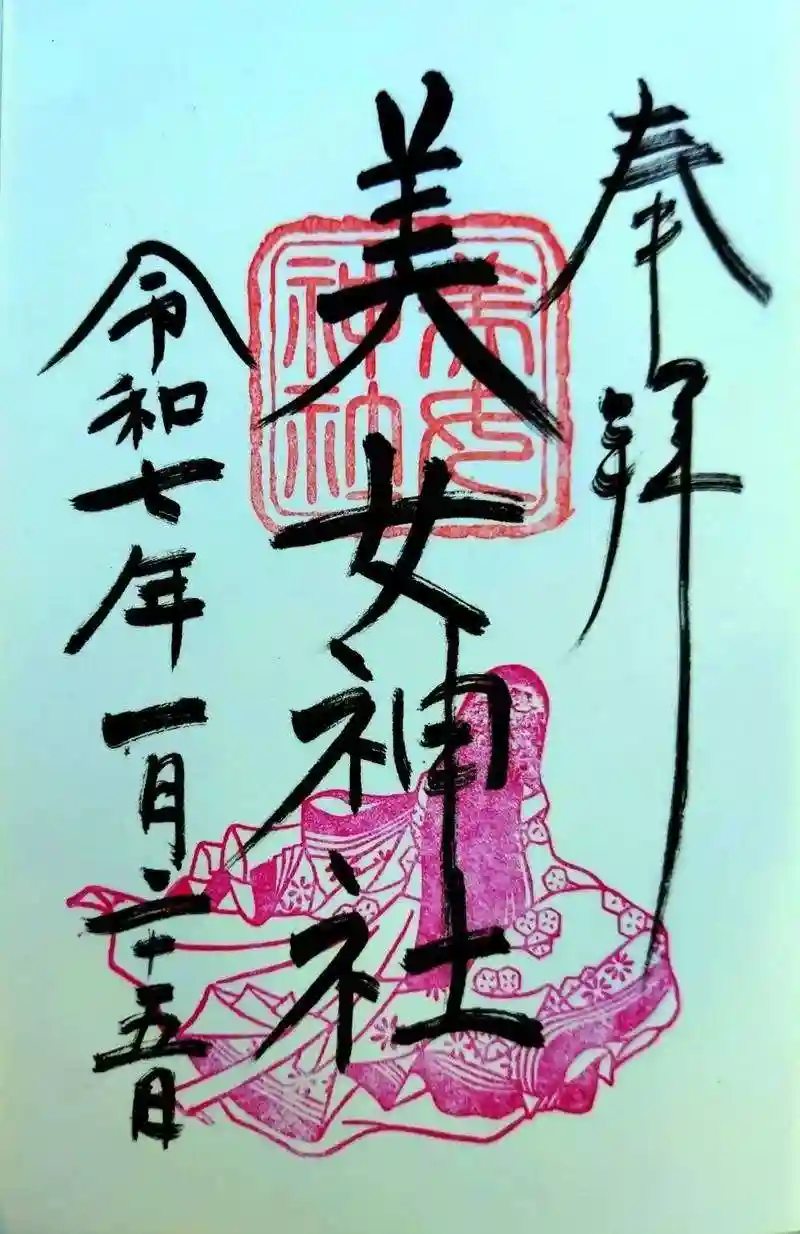 奉拝
美女神社
美女神社
令和七年一月二十五日